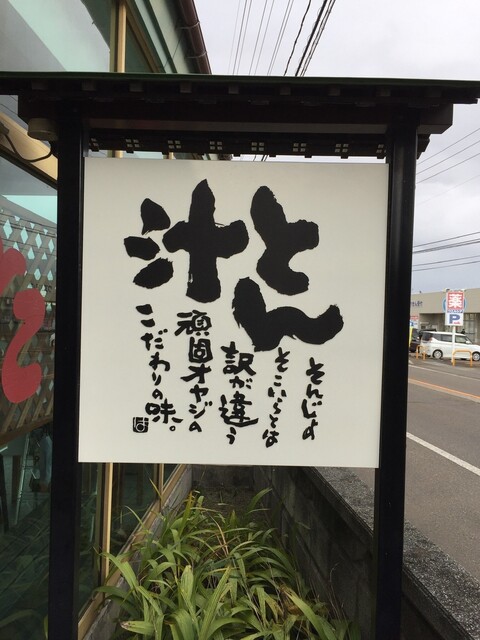 とん汁
そんじょ
そこいらとは
訳が違う
頑固オヤジの
こだわりの味。
薬
P